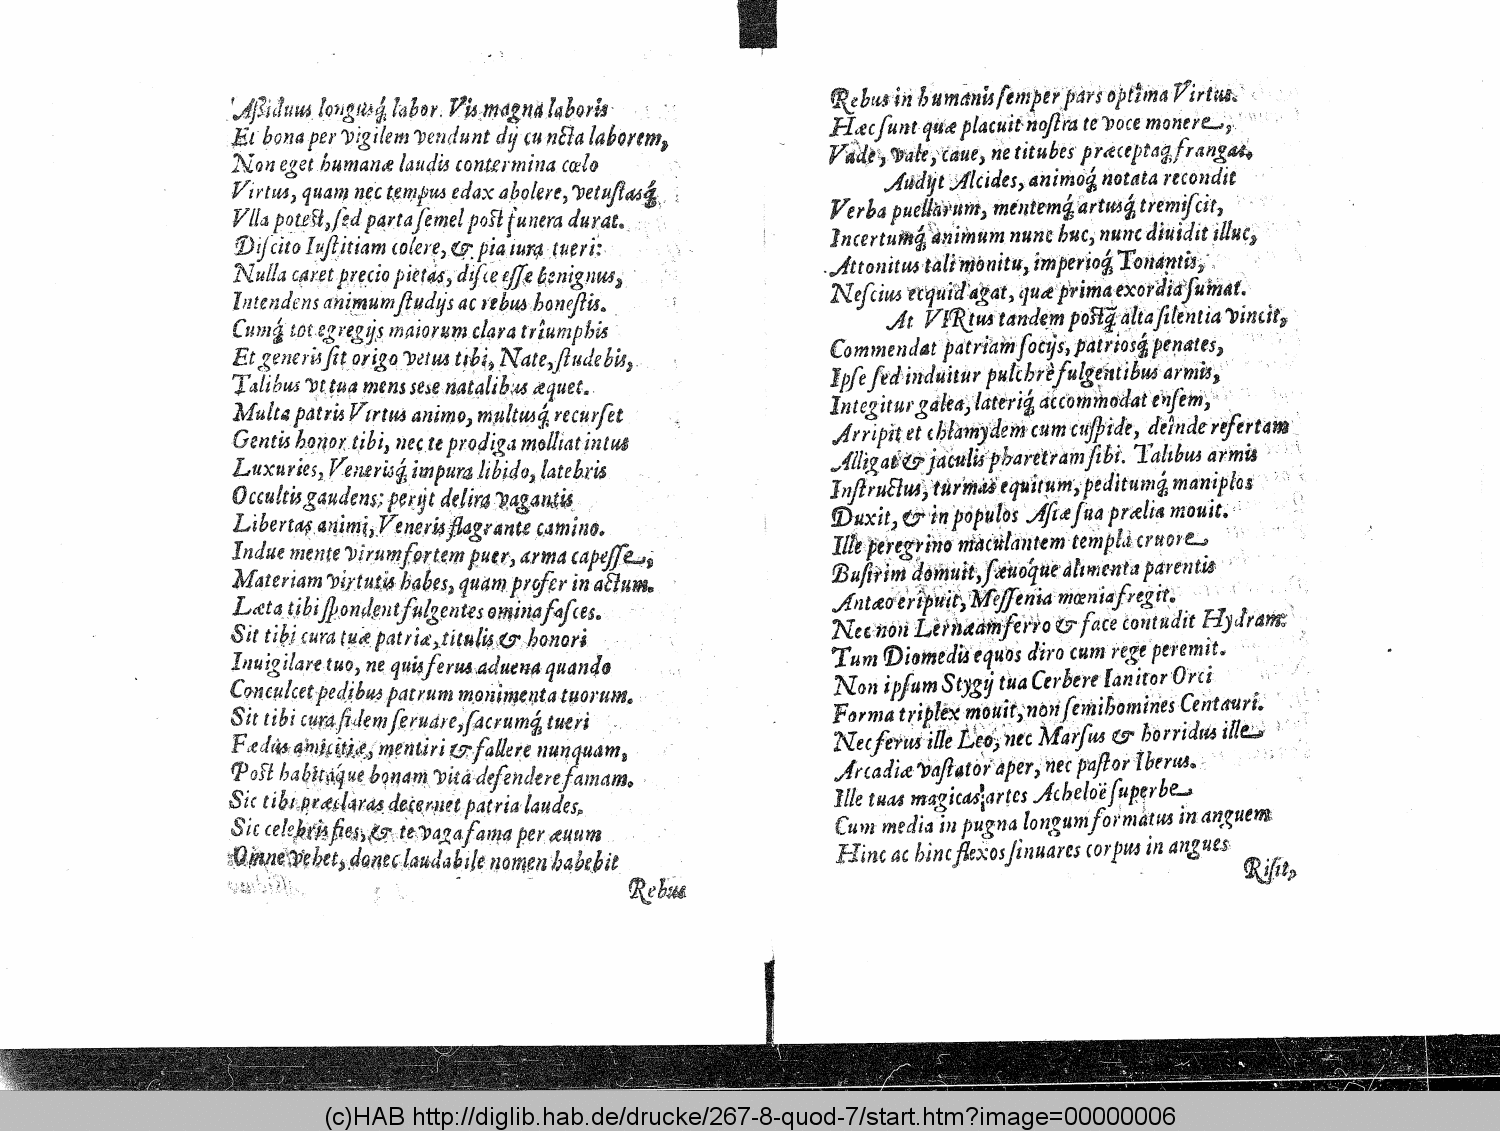 Aſsiduus longusq́ labor. Vis magna laboris
Et bona per vigilem vendunt dij cuncta laborem,
Non eget humanæ laudis contermina cœlo
Virtus, quam nec tempus edax abolere, vetuſtasq́
Vlla poteſt, ſed parta ſemel poſt funera durat.
Diſcito Iuſtitiam colere, & pia iura tueri:
Nulla caret precio pietas, diſce eſſe benignus,
Intendens animum ſtudijs ac rebus honeſtis.
Cumq́ tot egregijs maiorum clara triumphis
Et generis ſit origo vetus tibi, Nate, ſtudebis,
Talibus vt tua mens sese natalibus æquet.
Multa patris Virtus animo, multusq́ recurſet
Gentis honor tibi, nec te prodiga molliat intus
Luxuries, Venerisq́ impura libido, latebris
Occultis gaudens: perijt delira vagantis
Libertas animi, Veneris flagrante camino.
Indue mente virum fortem puer, arma capeſſe,
Materiam virtutis habes, quam profer in actum.
Læta tibi ſpondent fulgentes omina faſces.
Sit tibi cura tuæ patriæ, titulis & honori
Inuigilare tuo, ne quis ferus aduena quando
Conculcet pedibus patrum monimenta tuorum.
Sit tibi cura fidem ſeruare, ſacrumq́ tueri
Fædus amicitiæ, mentiri & fallere nunquam,
Poſt habitáque bonam vita defendere famam.
Sic tibi præclaras decernet patria laudes,
Sic celebris fies, & te vaga fama per æuum
Omne vehet, donec laudabile nomen habebit
Rebus
Rebus in humanis ſemper pars optima Virtus.
Hæc ſunt quæ placuit noſtra te voce monere,
Vade, vale, caue, ne titubes præceptaq́ frangas.
Audijt Alcides, animoq́ notata recondit
Verba puellarum, mentemq́ artusq́ tremiſcit,
Incertumq́ animum nunc huc, nunc diuidit illuc,
Attonitus tali monitu, imperioq́ Tonantis,
Neſcius ecquid agat, quæ prima exordia ſumat.
At VIRtus tandem poſtq̃ alta ſilentia vincit,
Commendat patriam ſocijs, patriosq́ penates,
Ipſe ſed induitur pulchrè fulgentibus armis,
Integitur galea, lateriq́ accommodat enſem,
Arripit et chlamydem cum cuſpide, deinde refertam
Alligat & jaculis pharetram ſibi. Talibus armis
Inſtructus, turmas equitum, peditumq́ maniplos
Duxit, & in populos Aſiæ ſua prælia mouit.
Ille peregrino maculantem templa cruore
Buſirim domuit, ſæuóque alimenta parentis
Antæo eripuit, Meſſenia mœnia fregit.
Nec non Lernæam ferro & face contudit Hydram:
Tum Diomedis equos diro cum rege peremit.
Non ipſum Stygij tua Cerbere Ianitor Orci
Forma triplex mouit, non ſemihomines Centauri.
Nec ferus ille Leo, nec Marſus & horridus ille
Arcadiæ vaſtator aper, nec paſtor Iberus.
Ille tuas magicas artes Acheloë ſuperbe
Cum media in pugna longum formatus in anguem
Hinc ac hinc flexos ſinuares corpus in angues
Riſit,
(c)HAB http://diglib.hab.de/drucke/267-8-quod-7/start.htm?image=00000006